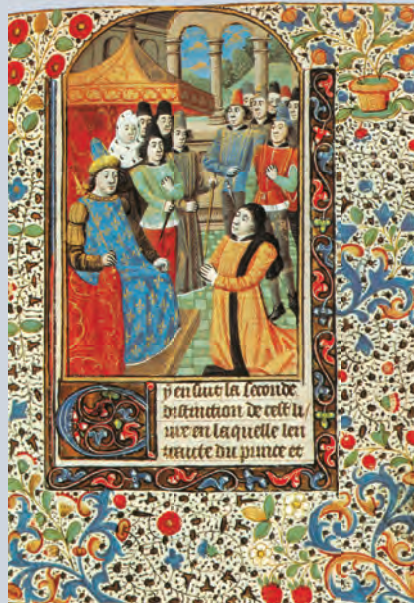 Cy ensuit la seconde
distinction de cest li
vre en laquelle len
traicte du prince et